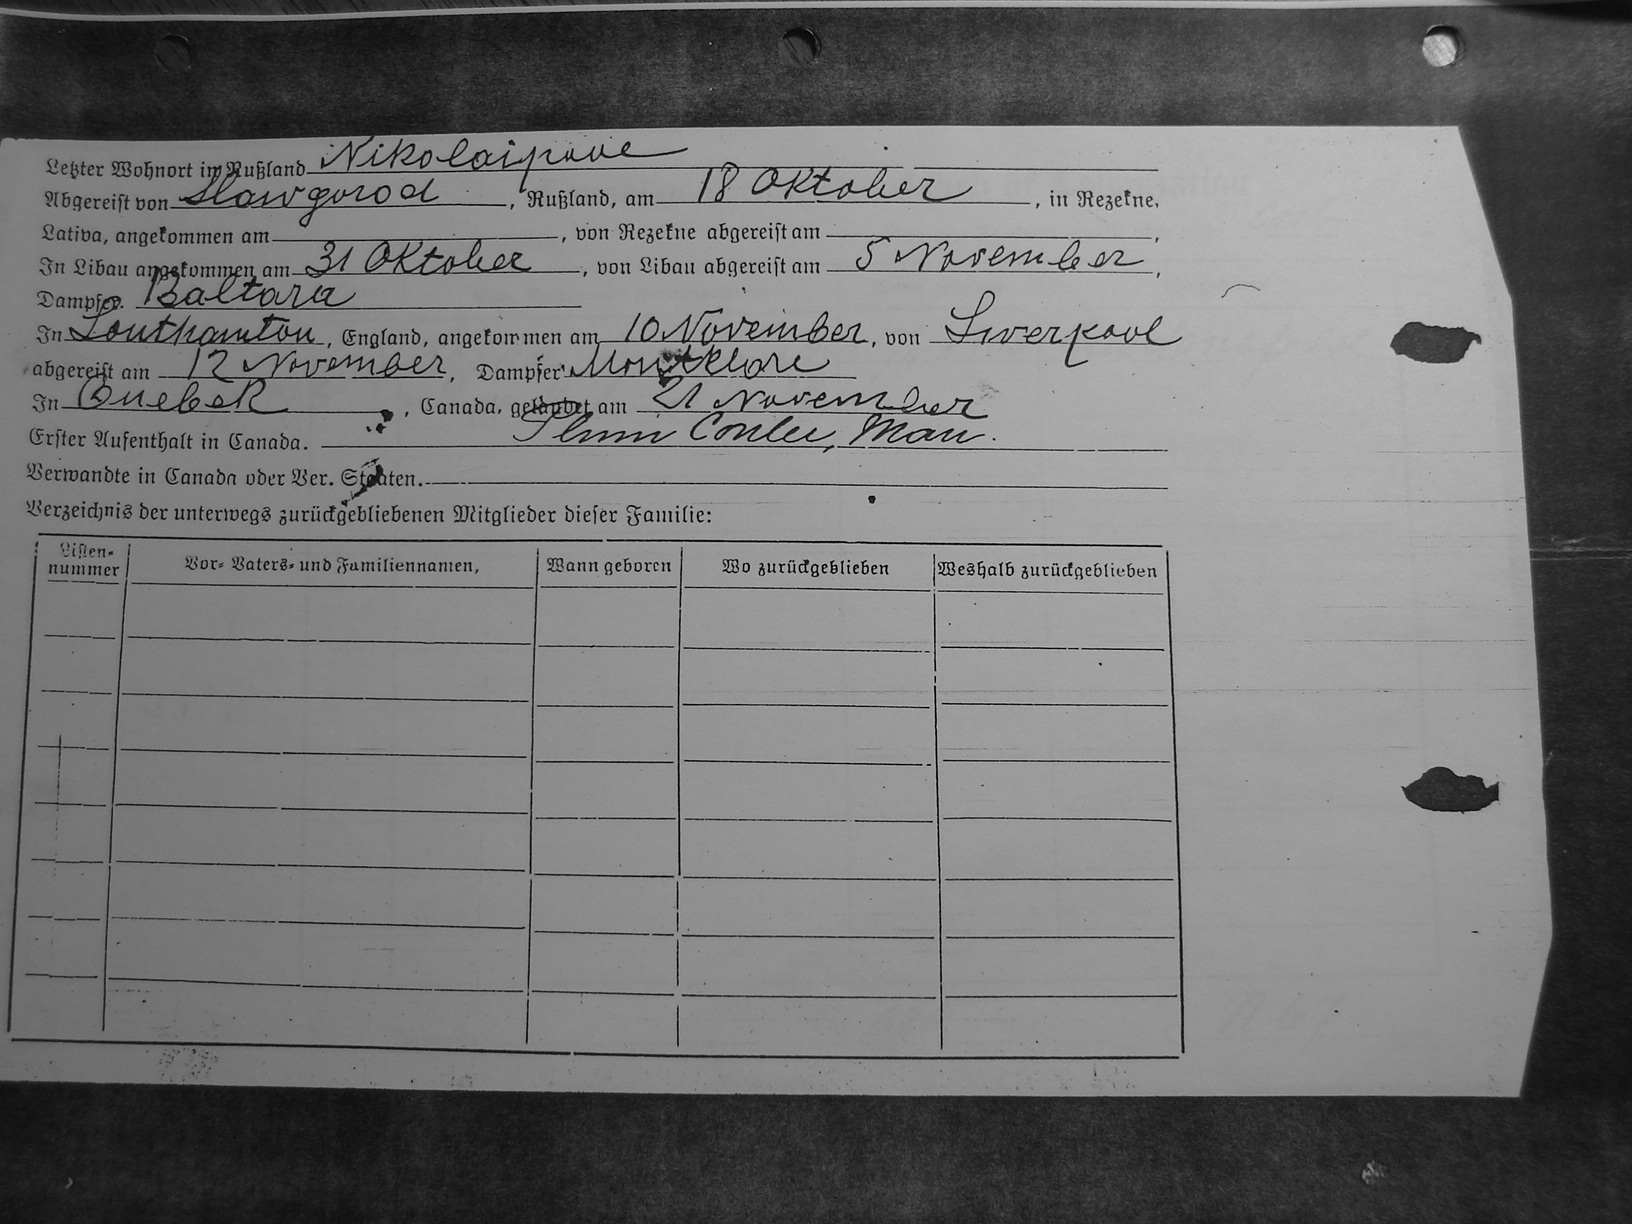 Letzter Wohnort in Rußland Nikolaipole
Abgereist von Slawgorod, Rußland, am 18 Oktober, in Rezekne,
Lativa, angekommen am , von Rezekne abgereist am ,
In Libau angekommen am 31 Oktober, von Libau abgereist am 5 November,
Dampfer Baltara
In Southamton, England, angekommen am 10 November, von Liverpool
abgereist am 12 November, Dampfer Montklare
In Quebek, Canada, gelandet am 21 November
Erster Aufenthalt in Canada. Plum Coulee, Man.
Verwandte in Canada oder Ver. Staaten.
Verzeichnis der unterwegs zurückgebliebenen Mitglieder dieser Familie:
Listen-nummer Vor- Vaters- und Familiennamen, Wann geboren Wo zurückgeblieben Weshalb zurückgeblieben